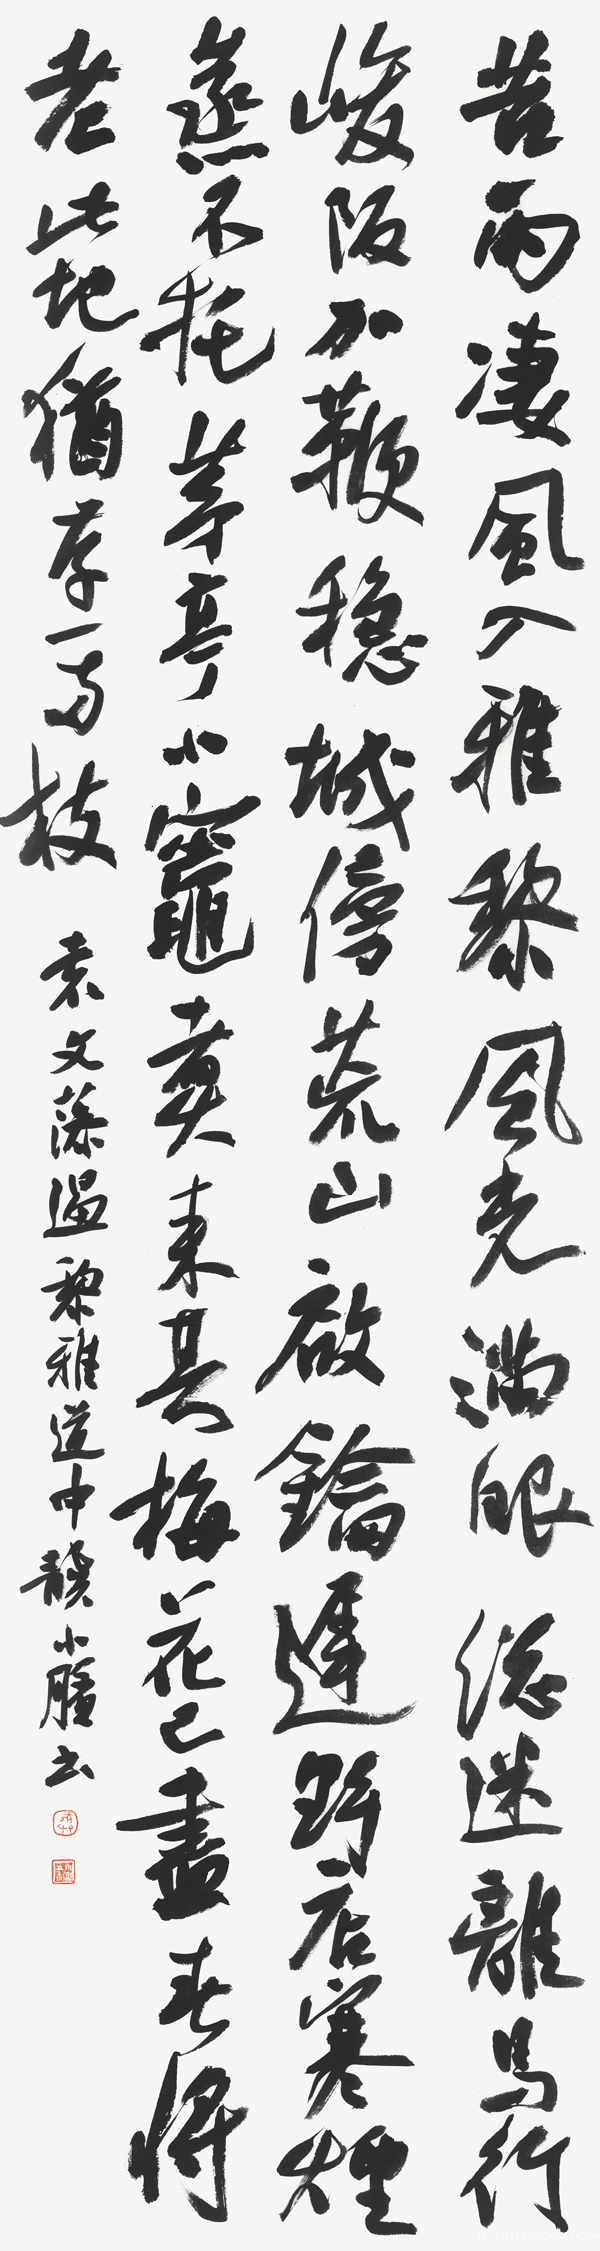 苦雨凄風入雅黎風光滿眼總迷離馬行
峻阪加鞭穩城傍荒山啟鑰遲野店寒煙
蒸不托茅亭小竈賣來其梅花已盡春將
老此地猶存一两枝
袁文藻過黎雅道中龔小膳书